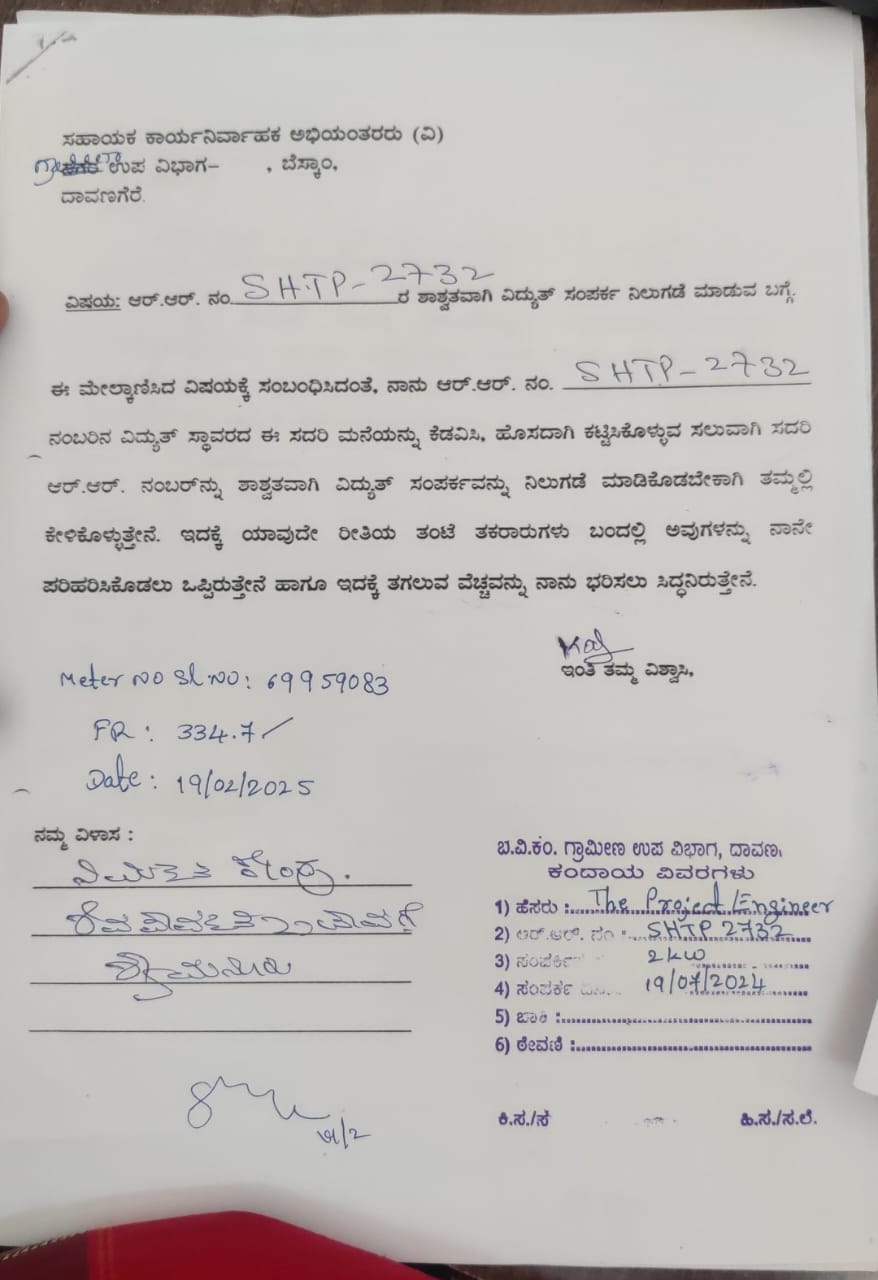 ಸಹಾಯಕ ಕಾರ್ಯನಿರ್ವಾಹಕ ಅಭಿಯಂತರರು (ವಿ)
ಉಪ ವಿಭಾಗ– , ಬೆಸ್ಕಾಂ,
ದಾವಣಗೆರೆ.
ವಿಷಯ: ಆರ್.ಆರ್. ನಂ. SHTP-2732 ರ ಶಾಶ್ವತವಾಗಿ ವಿದ್ಯುತ್ ಸಂಪರ್ಕ ನಿಲುಗಡೆ ಮಾಡುವ ಬಗ್ಗೆ.
ಈ ಮೇಲ್ಕಾಣಿಸಿದ ವಿಷಯಕ್ಕೆ ಸಂಬಂಧಿಸಿದಂತೆ, ನಾನು ಆರ್.ಆರ್. ನಂ. SHTP-2732
ನಂಬರಿನ ವಿದ್ಯುತ್ ಸ್ಥಾವರದ ಈ ಸದರಿ ಮನೆಯನ್ನು ಕೆಡವಿಸಿ, ಹೊಸದಾಗಿ ಕಟ್ಟಿಸಿಕೊಳ್ಳುವ ಸಲುವಾಗಿ ಸದರಿ
ಆರ್.ಆರ್. ನಂಬರ್‌ನ್ನು ಶಾಶ್ವತವಾಗಿ ವಿದ್ಯುತ್ ಸಂಪರ್ಕವನ್ನು ನಿಲುಗಡೆ ಮಾಡಿಕೊಡಬೇಕಾಗಿ ತಮ್ಮಲ್ಲಿ
ಕೇಳಿಕೊಳ್ಳುತ್ತೇನೆ. ಇದಕ್ಕೆ ಯಾವುದೇ ರೀತಿಯ ತಂಟೆ ತಕರಾರುಗಳು ಬಂದಲ್ಲಿ ಅವುಗಳನ್ನು ನಾನೇ
ಪರಿಹರಿಸಿಕೊಡಲು ಒಪ್ಪಿರುತ್ತೇನೆ ಹಾಗೂ ಇದಕ್ಕೆ ತಗಲುವ ವೆಚ್ಚವನ್ನು ನಾನು ಭರಿಸಲು ಸಿದ್ಧನಿರುತ್ತೇನೆ.
ಇಂತಿ ತಮ್ಮ ವಿಶ್ವಾಸಿ,
Meter NO Sl NO: 69959083
FR: 334.7/
Date: 19/02/2025
ನಮ್ಮ ವಿಳಾಸ :
ಬ.ವಿ.ಕಂ. ಗ್ರಾಮೀಣ ಉಪ ವಿಭಾಗ, ದಾವಣ
ಕಂದಾಯ ವಿವರಗಳು
1) ಹೆಸರು : The Project/Engineer
2) ಆರ್.ಆರ್. ನಂ : SHTP 2732
3) 2kw
4) ಸಂಪರ್ಕ 19/07/2024
5) ಬಾಕಿ :
6) ಠೇವಣಿ :
ಕಿ.ಸ./ಸ ಹಿ.ಸ./ಸ.ಲೆ.